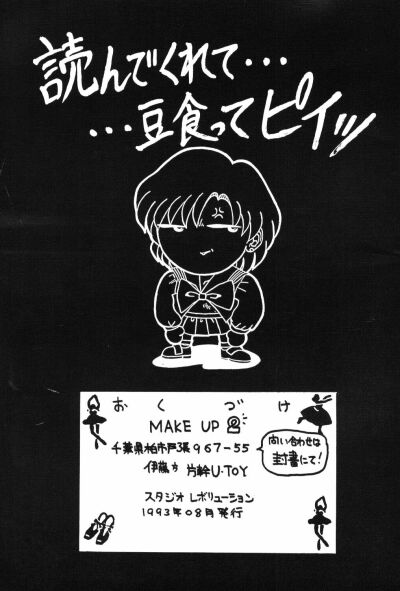 読んでくれて・・・
・・・豆食ってピイッ
おくづけ
MAKE UP 2
千葉県柏市戸張967-55
伊藤方 片幹U・TOY
問い合わせは
封書にて!
スタジオ レボリューション
1993年08月発行